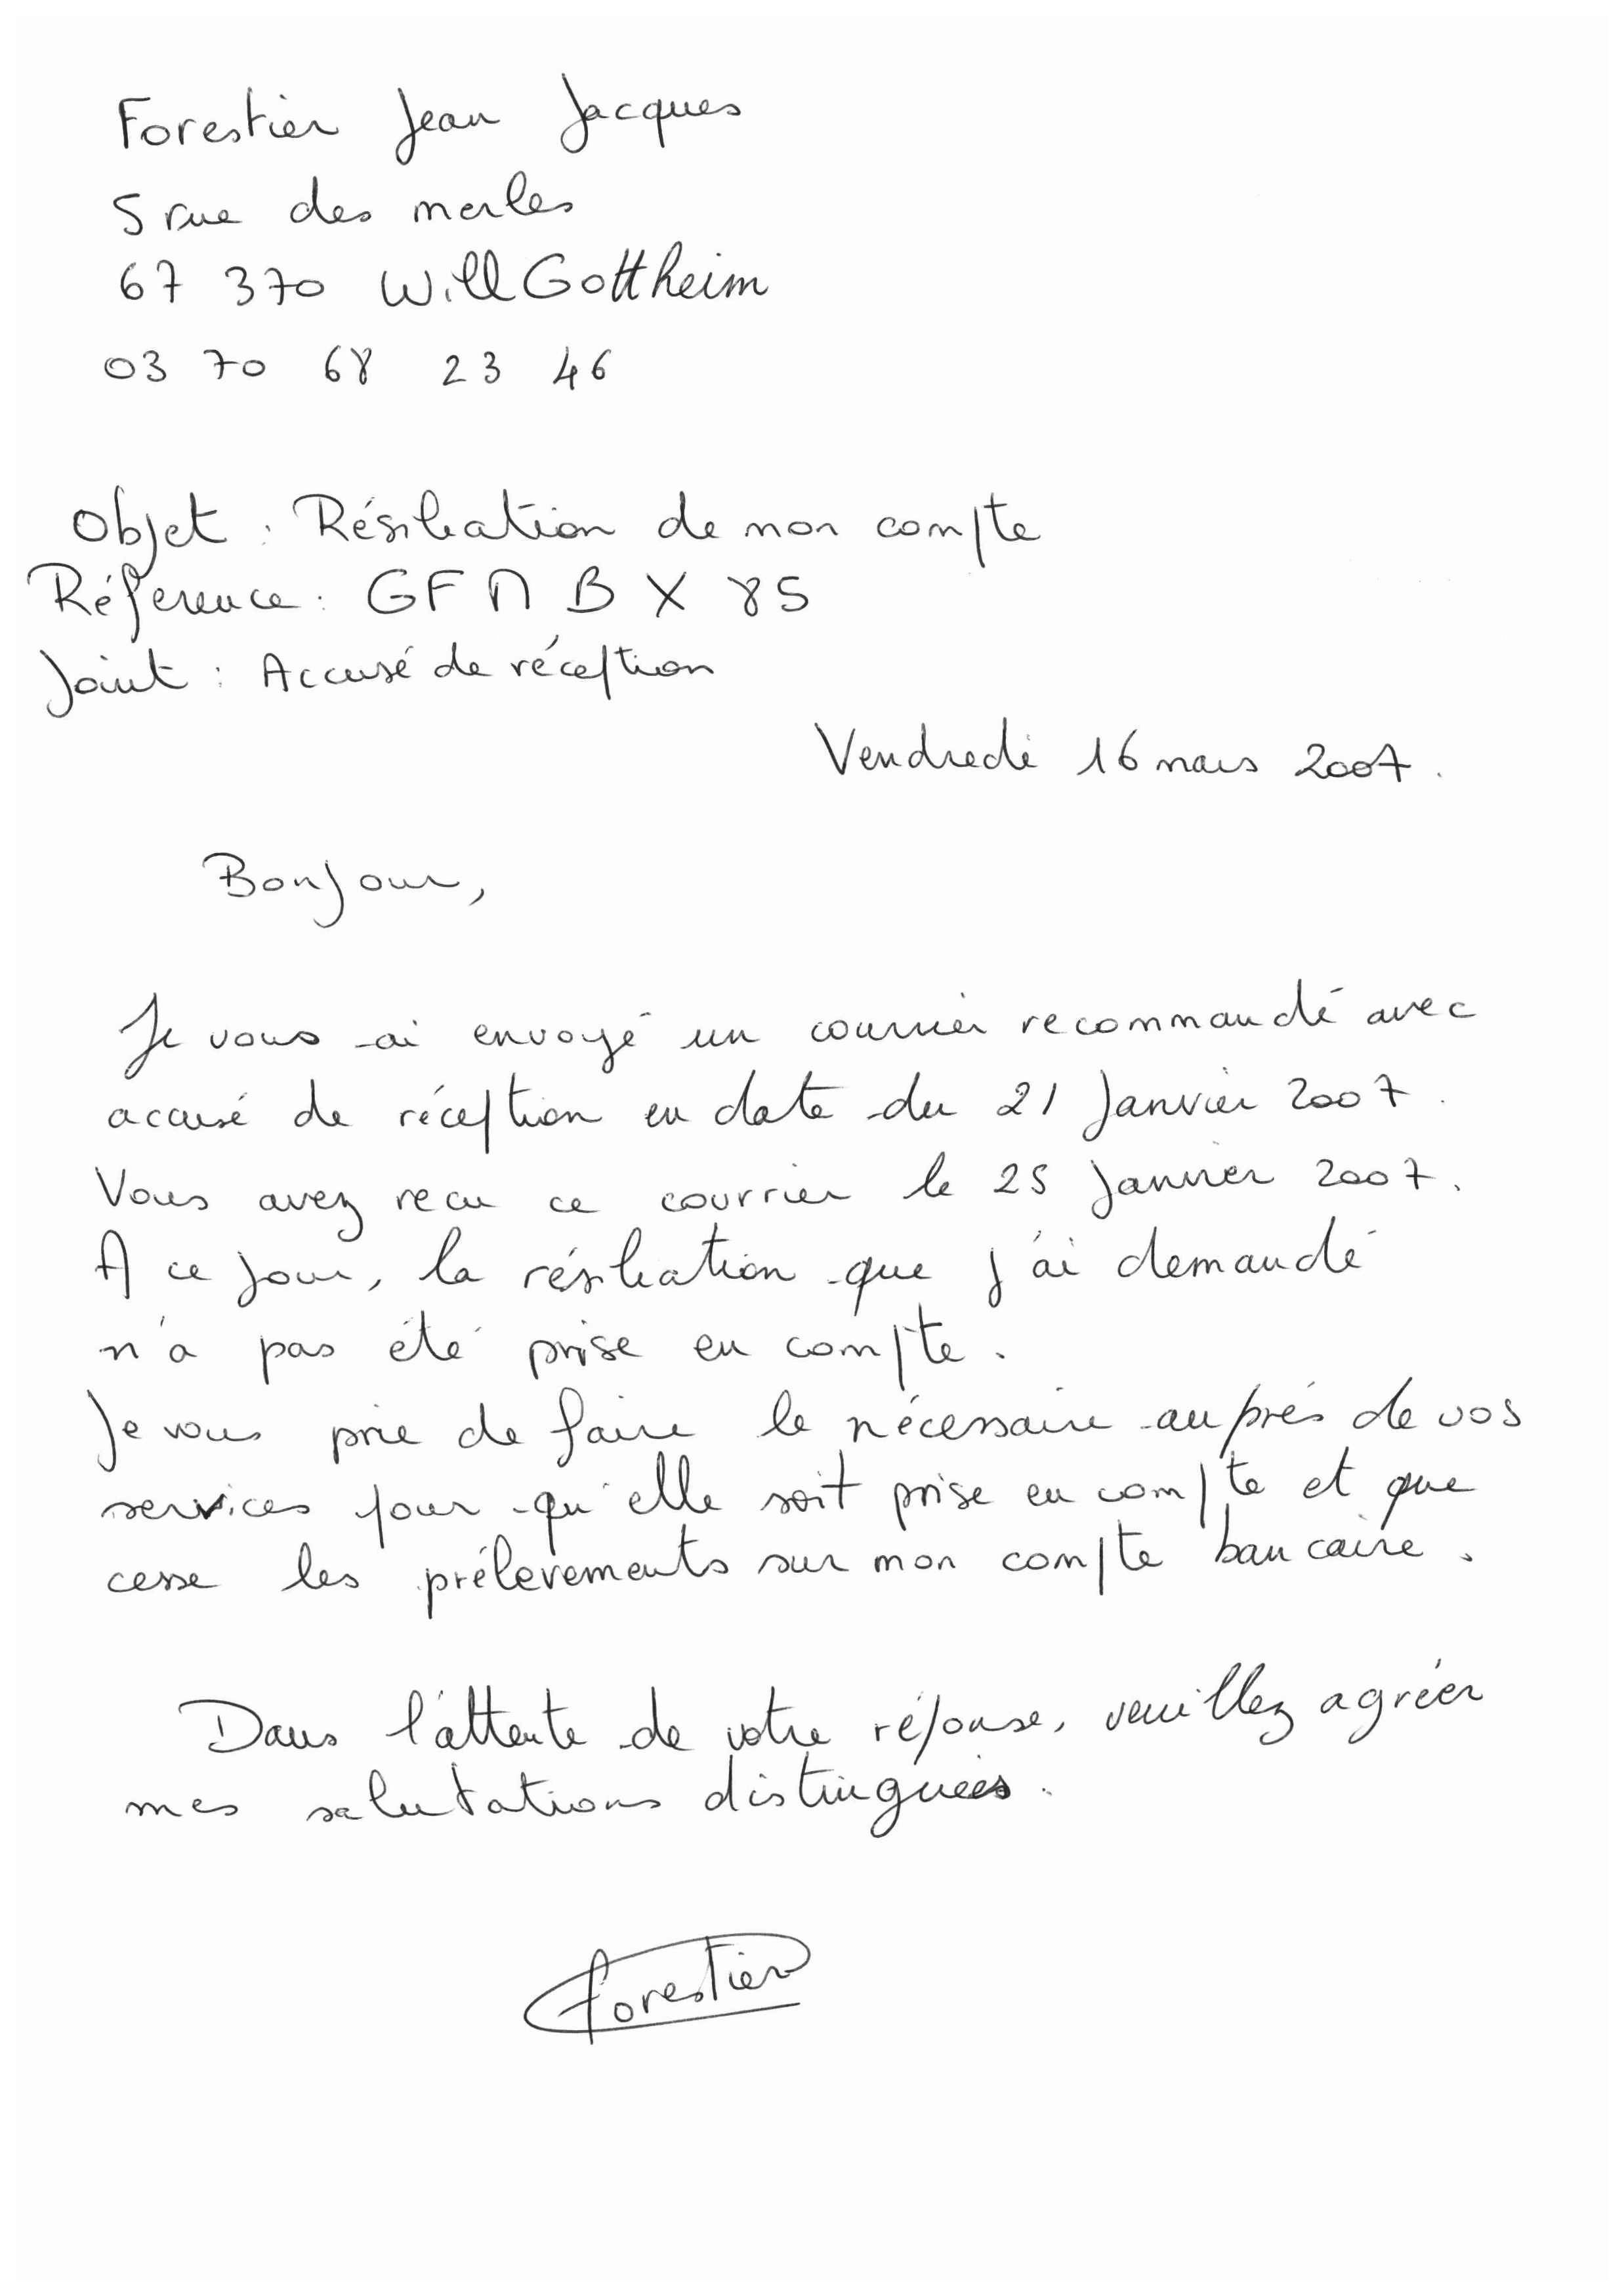 Forestier Jean Jacques
5 rue des merles
67 370 WillGottheim
03 70 68 23 46
Objet : Résiliation de mon compte
Réference : GFMBX 85
Joint : Accusé de réception
Vendredi 16 mars 2007.
Bonjour,
Je vous ai envoyé un courrier recommandé avec
accusé de réception en date du 21 Janvier 2007.
Vous avez recu ce courrier le 25 Janvier 2007.
A ce jour, la résiliation que j'ai demandé
n'a pas été prise en compte.
Je vous prie de faire le nécessaire auprés de vos
services pour qu'elle soit prise en compte et que
cesse les prélevements sur mon compte bancaire.
Dans l'attente de votre réponse, veuillez agréer
mes salutations distinguées.
Forestier